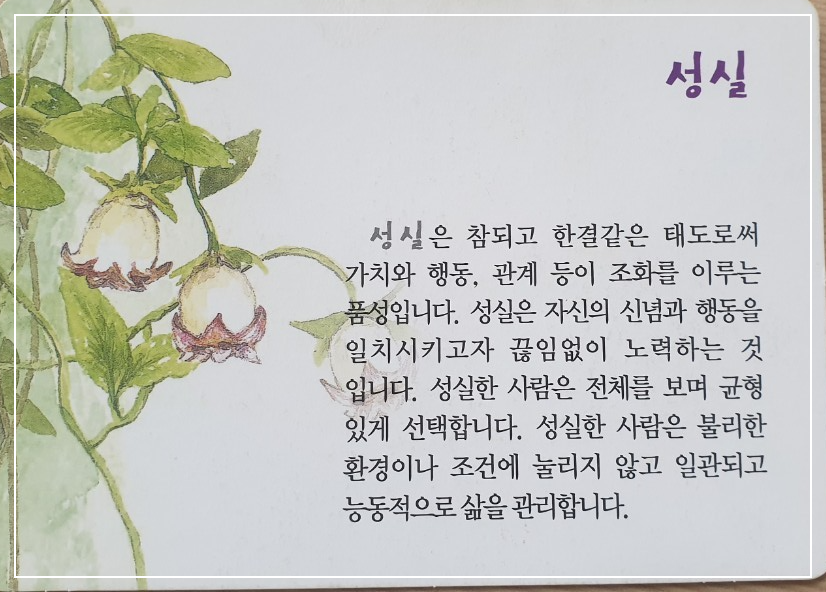 성실
성실은 참되고 한결같은 태도로써
가치와 행동, 관계 등이 조화를 이루는
품성입니다. 성실은 자신의 신념과 행동을
일치시키고자 끊임없이 노력하는 것
입니다. 성실한 사람은 전체를 보며 균형
있게 선택합니다. 성실한 사람은 불리한
환경이나 조건에 눌리지 않고 일관되고
능동적으로 삶을 관리합니다.